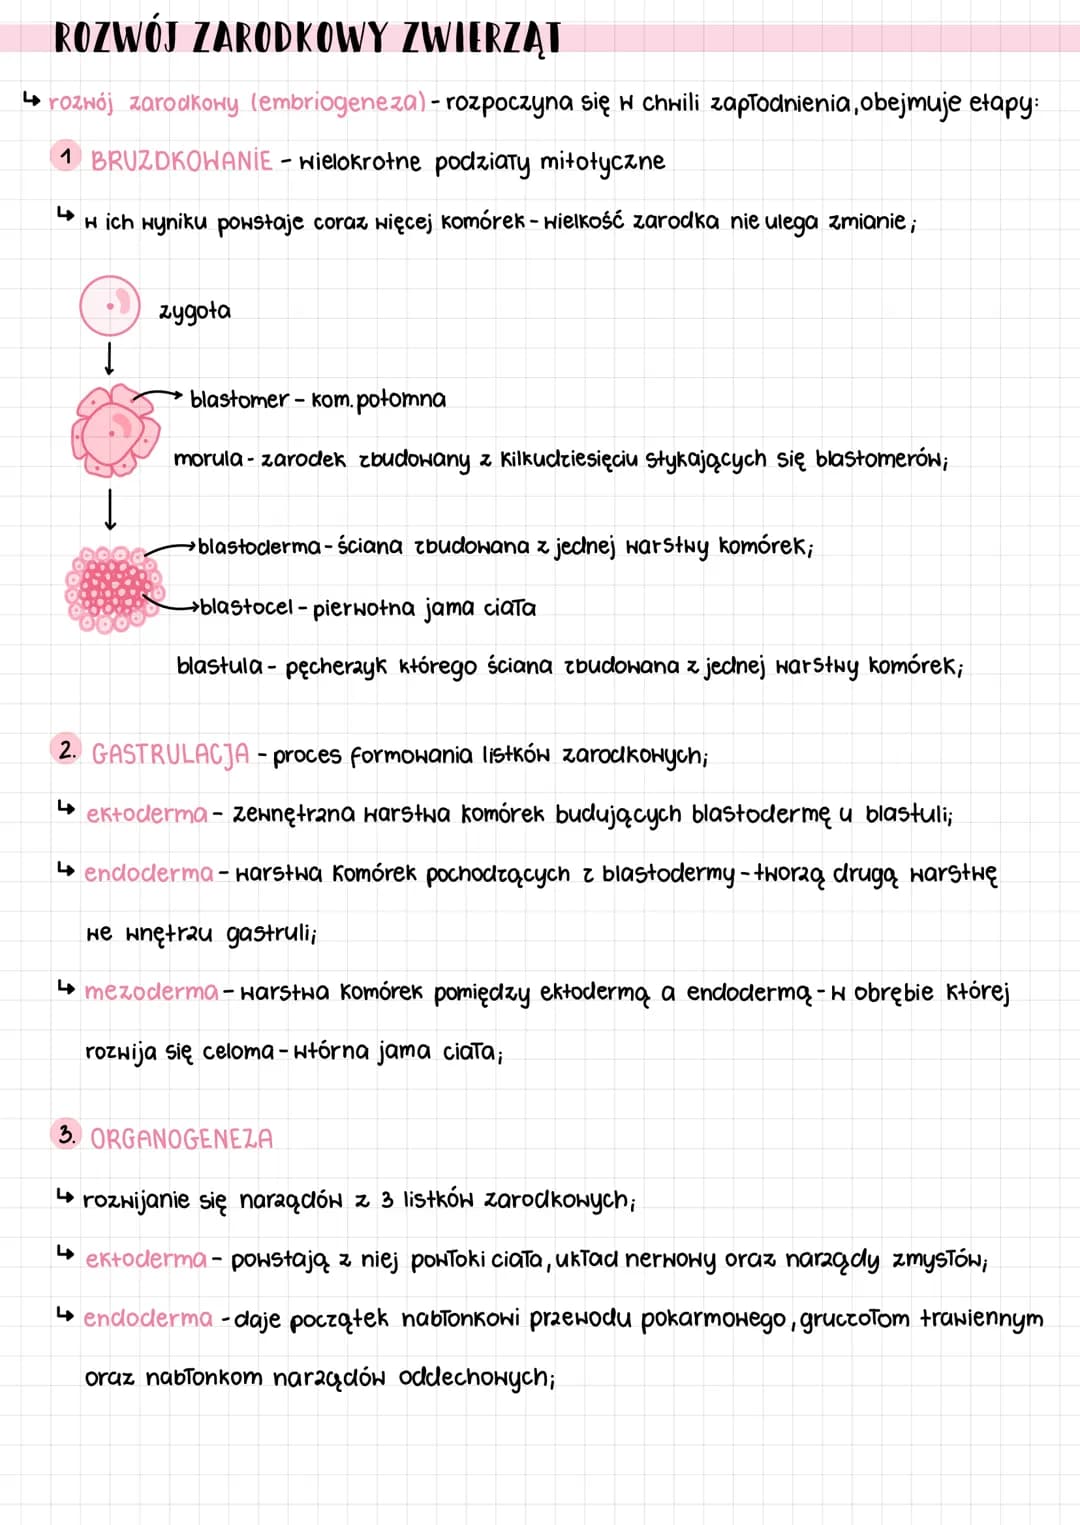 ROZWÓJ ZARODKOWY ZWIERZĄT
↳ rozwój zarodkowy (embriogeneza) - rozpoczyna się w chwili zapłodnienia, obejmuje etapy:
1 BRUZDKOWANIE - wielokrotne podziały mitotyczne
↳ w ich wyniku powstaje coraz więcej komórek - wielkość zarodka nie ulega zmianie;
zygota
blastomer - kom. potomna
morula - zarodek zbudowany z kilkudziesięciu stykających się blastomerów;
blastoderma - ściana zbudowana z jednej warstwy komórek;
blastocel - pierwotna jama ciała
blastula - pęcherzyk którego ściana zbudowana z jednej warstwy komórek;
2. GASTRULACJA - proces formowania listków zarodkowych;
↳ ektoderma - zewnętrzna warstwa komórek budujących blastodermę u blastuli;
↳ endoderma - warstwa komórek pochodzących z blastodermy - tworzą drugą warstwę
we wnętrzu gastruli;
↳ mezoderma - warstwa komórek pomiędzy ektodermą a endodermą - w obrębie której
rozwija się celoma - wtórna jama ciała;
3. ORGANOGENEZA
↳ rozwijanie się narządów z 3 listków zarodkowych;
↳ ektoderma - powstają z niej powłoki ciała, układ nerwowy oraz narządy zmysłów;
↳ endoderma - daje początek nabłonkowi przewodu pokarmowego, gruczołom trawiennym
oraz nabłonkom narządów oddechowych;